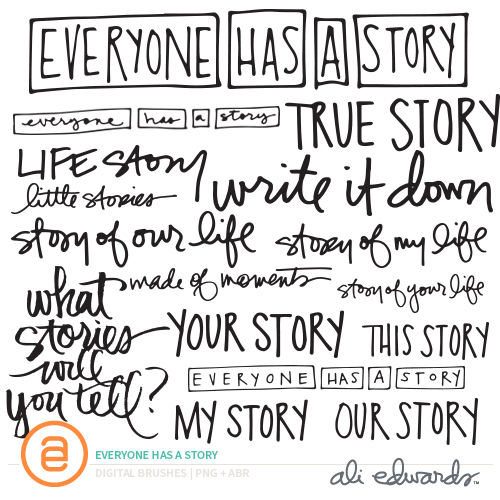 EVERYONE HAS A STORY
everyone has a story
TRUE STORY
LIFE story
little stories
write it down
story of our life
story of my life
made of moments
story of your life
what
stories
will
you tell?
YOUR STORY
THIS STORY
EVERYONE HAS A STORY
MY STORY
OUR STORY
ae
EVERYONE HAS A STORY
DIGITAL BRUSHES | PNG + ABR
ali edwards™